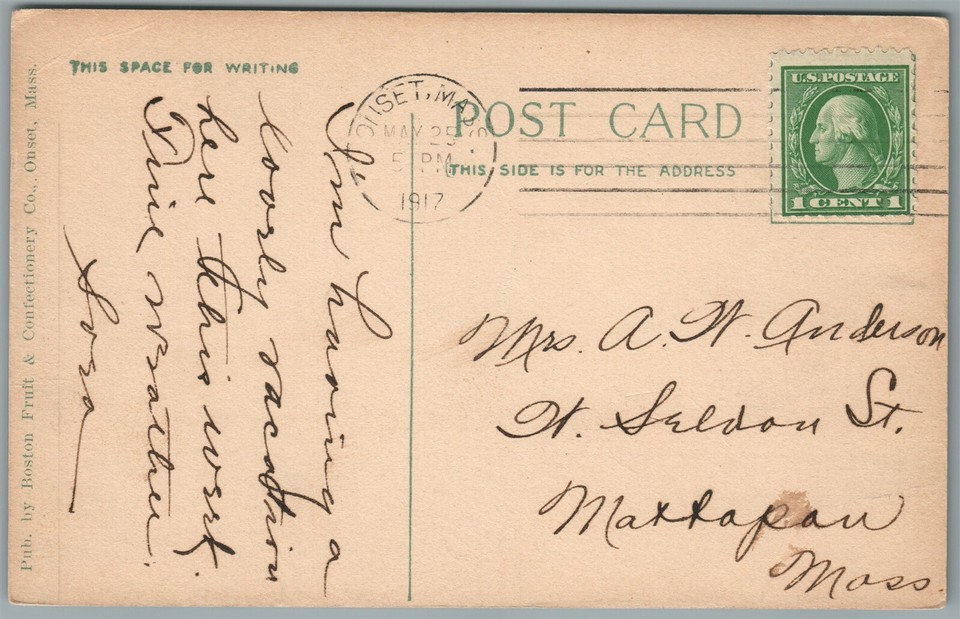 Pub. by Boston Fruit & Confectionery Co., Onset, Mass.
THIS SPACE FOR WRITING
I'm having a
loverly vacation
here this week.
Fine weather.
Lora
ONSET, MASS.
MAY 25
5 PM
1917
POST CARD
THIS SIDE IS FOR THE ADDRESS
U.S. POSTAGE
1 CENT 1
Mrs. A. W. Anderson
W. Seldon St.
Mattapan
Mass.